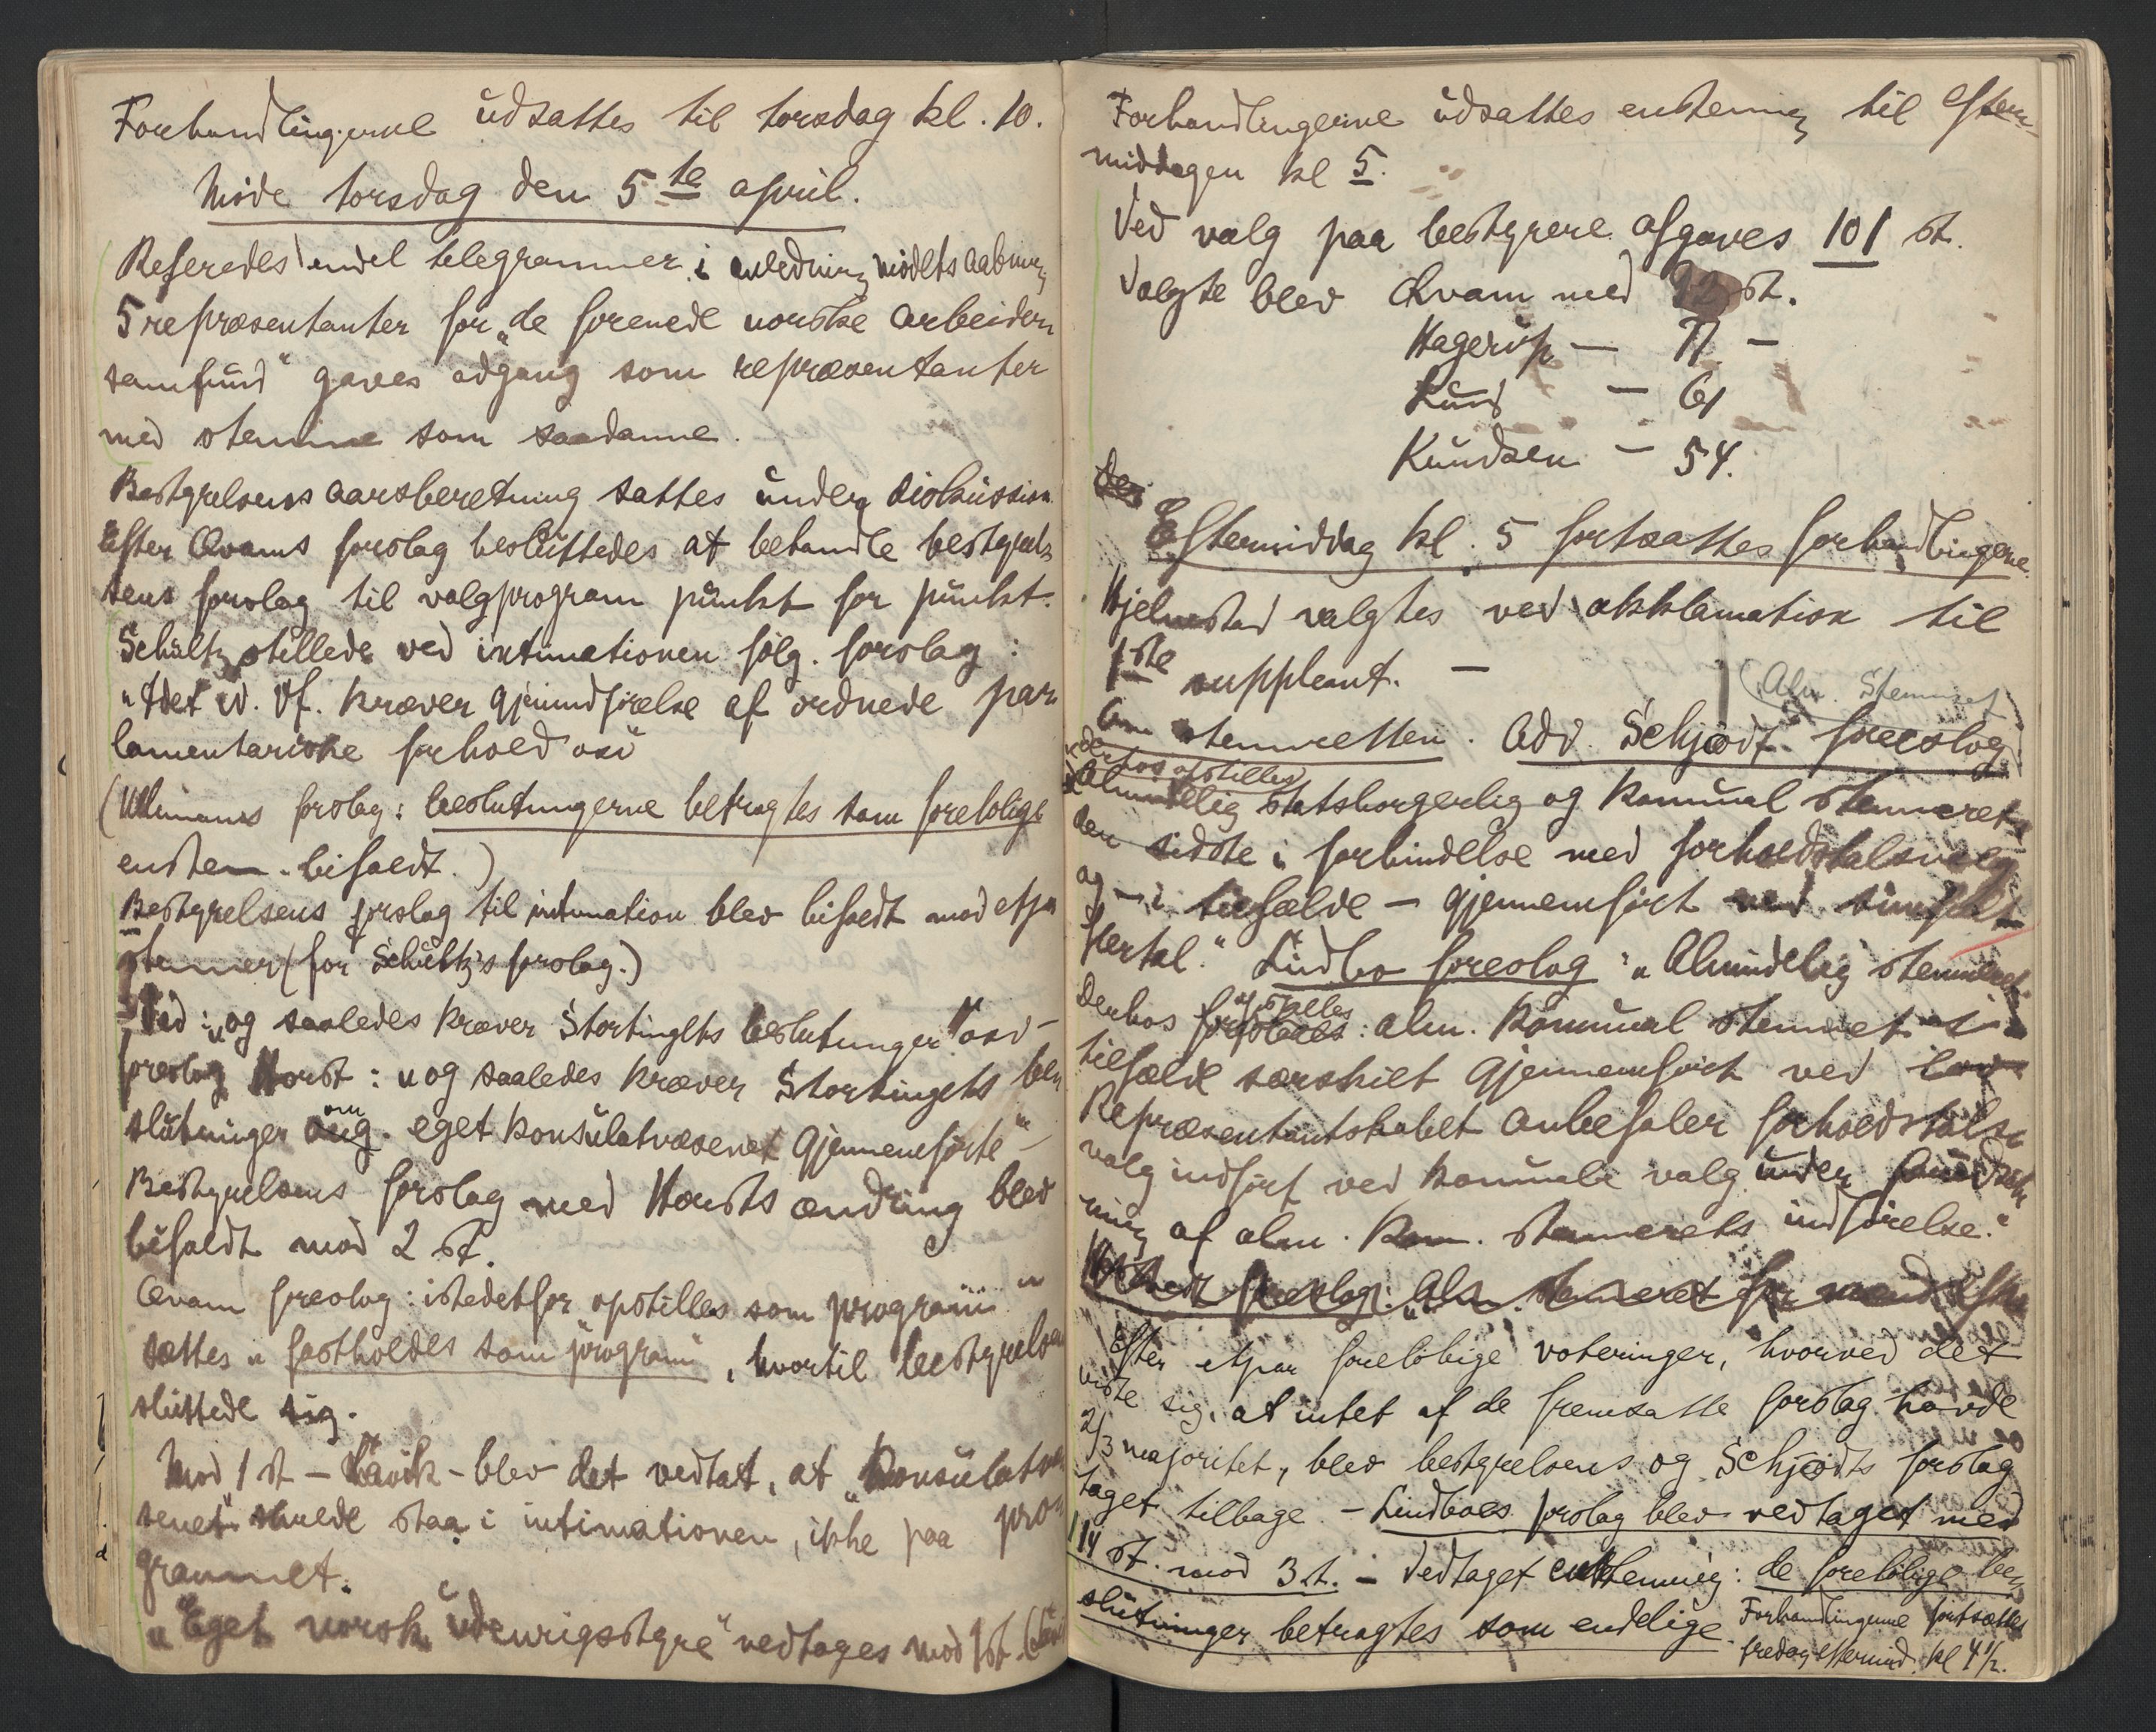 Forhandlingerne udsattes til torsdag kl. 10.
Möde torsdag den 5te april.
Referedes endel telegrammer i anledning mödets aabning
5 repræsentanter for „de forenede norske arbeider-
samfund“ gaves adgang som repræsentanter
med stemme som saadanne.
Bestyrelsens aarsberetning sattes under diskussion.
Efter Qvams forslag besluttedes at behandle bestyrel-
sens forslag til valgprogram punkt for punkt.
Schultz stillede ved intimationen fölg. forslag:
„Idet N. Vf. kræver gjenindförelse af ordnede par-
lamentariske forhold osv
(Ullmanns forslag: beslutningerne betragtes som forelöbige
enstem. bifaldt.)
Bestyrelsens forslag til intimation blev bifaldt mod etpar
stemmer (for Schultz's forslag.)
Ved: „og saaledes kræver Stortingets beslutninger“ osv –
forslog Horst: „og saaledes kræver Stortingets be-
slutninger om eget konsulatvæsenet gjennemförte“ –
Bestyrelsens forslag med Horsts ændring blev
bifaldt mod 2 st.
Qvam foreslog: istedetfor opstilles som program“
sættes „fastholdes som program“, hvortil bestyrelsen
sluttede sig.
Mod 1 st – Lavik – blev det vedtat, at „konsulatvæ-
senet“ skulde staa i intimationen, ikke paa pro-
grammet.
„Eget norsk udenrigsstyre“ vedtages mod 1 st.
Forhandlingerne udsattes enstemig til efter-
middagen kl 5.
Ved valg paa bestyrere afgaves 101 st.
Valgte blev Qvam med 92 st.
Hagerup – 71 –
Lund – 61
Knudsen – 54.
Eftermiddag kl. 5 fortsattes forhandlingerne.
Hjelmstad valgtes ved akklamation til
1ste suppleant. –
(Alm. Stemmeret
Om stemmeretten. Adv. Schjødt foreslog
derhos opstilles
Almindelig statsborgerlig og kommunal stemmeret,
den sidste i forbindelse med forholdstalsvalg
og – i tilfælde – gjennemfört ved simpelt
flertal.“ Lindbo foreslog: „Almindelig stemmeret
opstilles
derhos foreslaaes: alm. kommunal stemmeret i
tilfælde særskilt gjennemfört ved lov
Repræsentantskabet anbefaler forholdstals-
valg indfört ved kommunale valg under forudsæt-
ning af alm. kom. stemmerets indförelse.“
foreslog: „Alm. stemmeret for mænd
Efter etpar forelöbige voteringer, hvorved det
viste sig, at intet af de fremsatte forslag havde
2/3 majoritet, blev bestyrelsens og Schjødts forslag
taget tilbage. – Lindboes forslag blev vedtaget med
114 st. mod 3 st. – Vedtaget enstemmig: de forelöbige be-
slutninger betragtes som endelige. Forhandlingerne fortsættes
fredag eftermid. kl 4½.